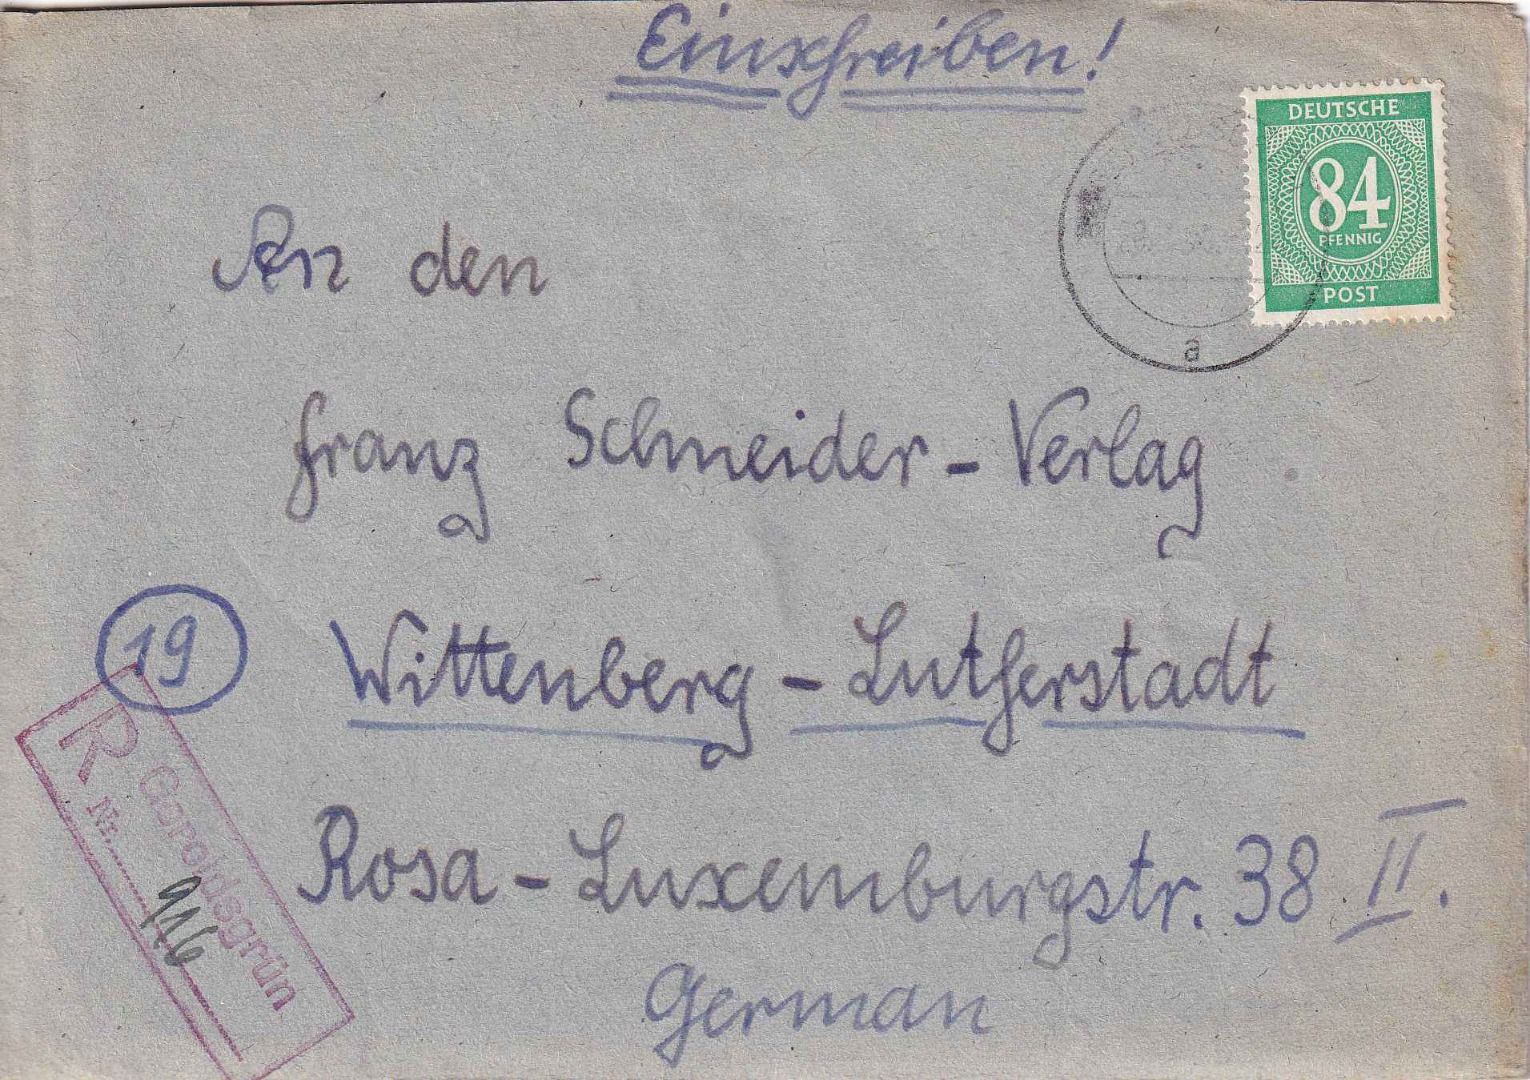 Einschreiben!
DEUTSCHE
84
PFENNIG
POST
a
An den
Franz Schneider-Verlag
19
Wittenberg-Lutherstadt
R
Geroldsgrün
Nr. 916
Rosa-Luxemburgstr. 38 II.
German